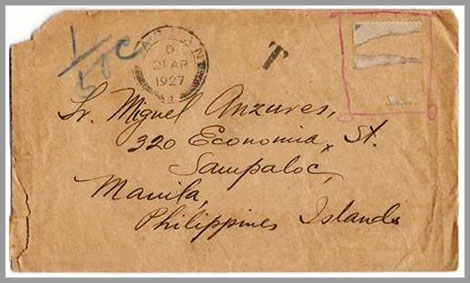 1/50c
D
21 AP
1927
T
Sr. Miguel Anzures,
320 Economia, St.
Sampaloc,
Manila,
Philippines Islands